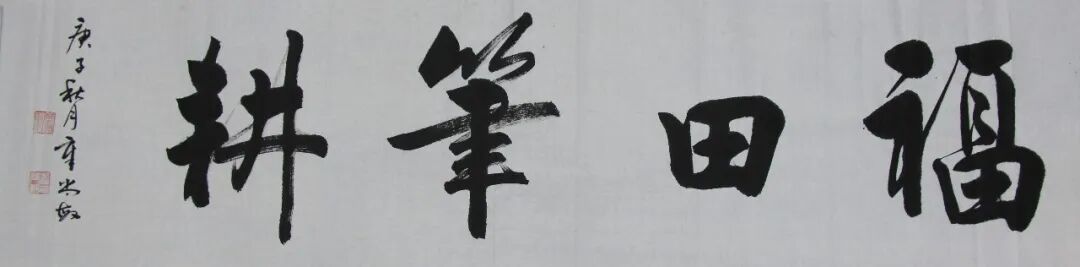 福田筆耕
庚子秋月章